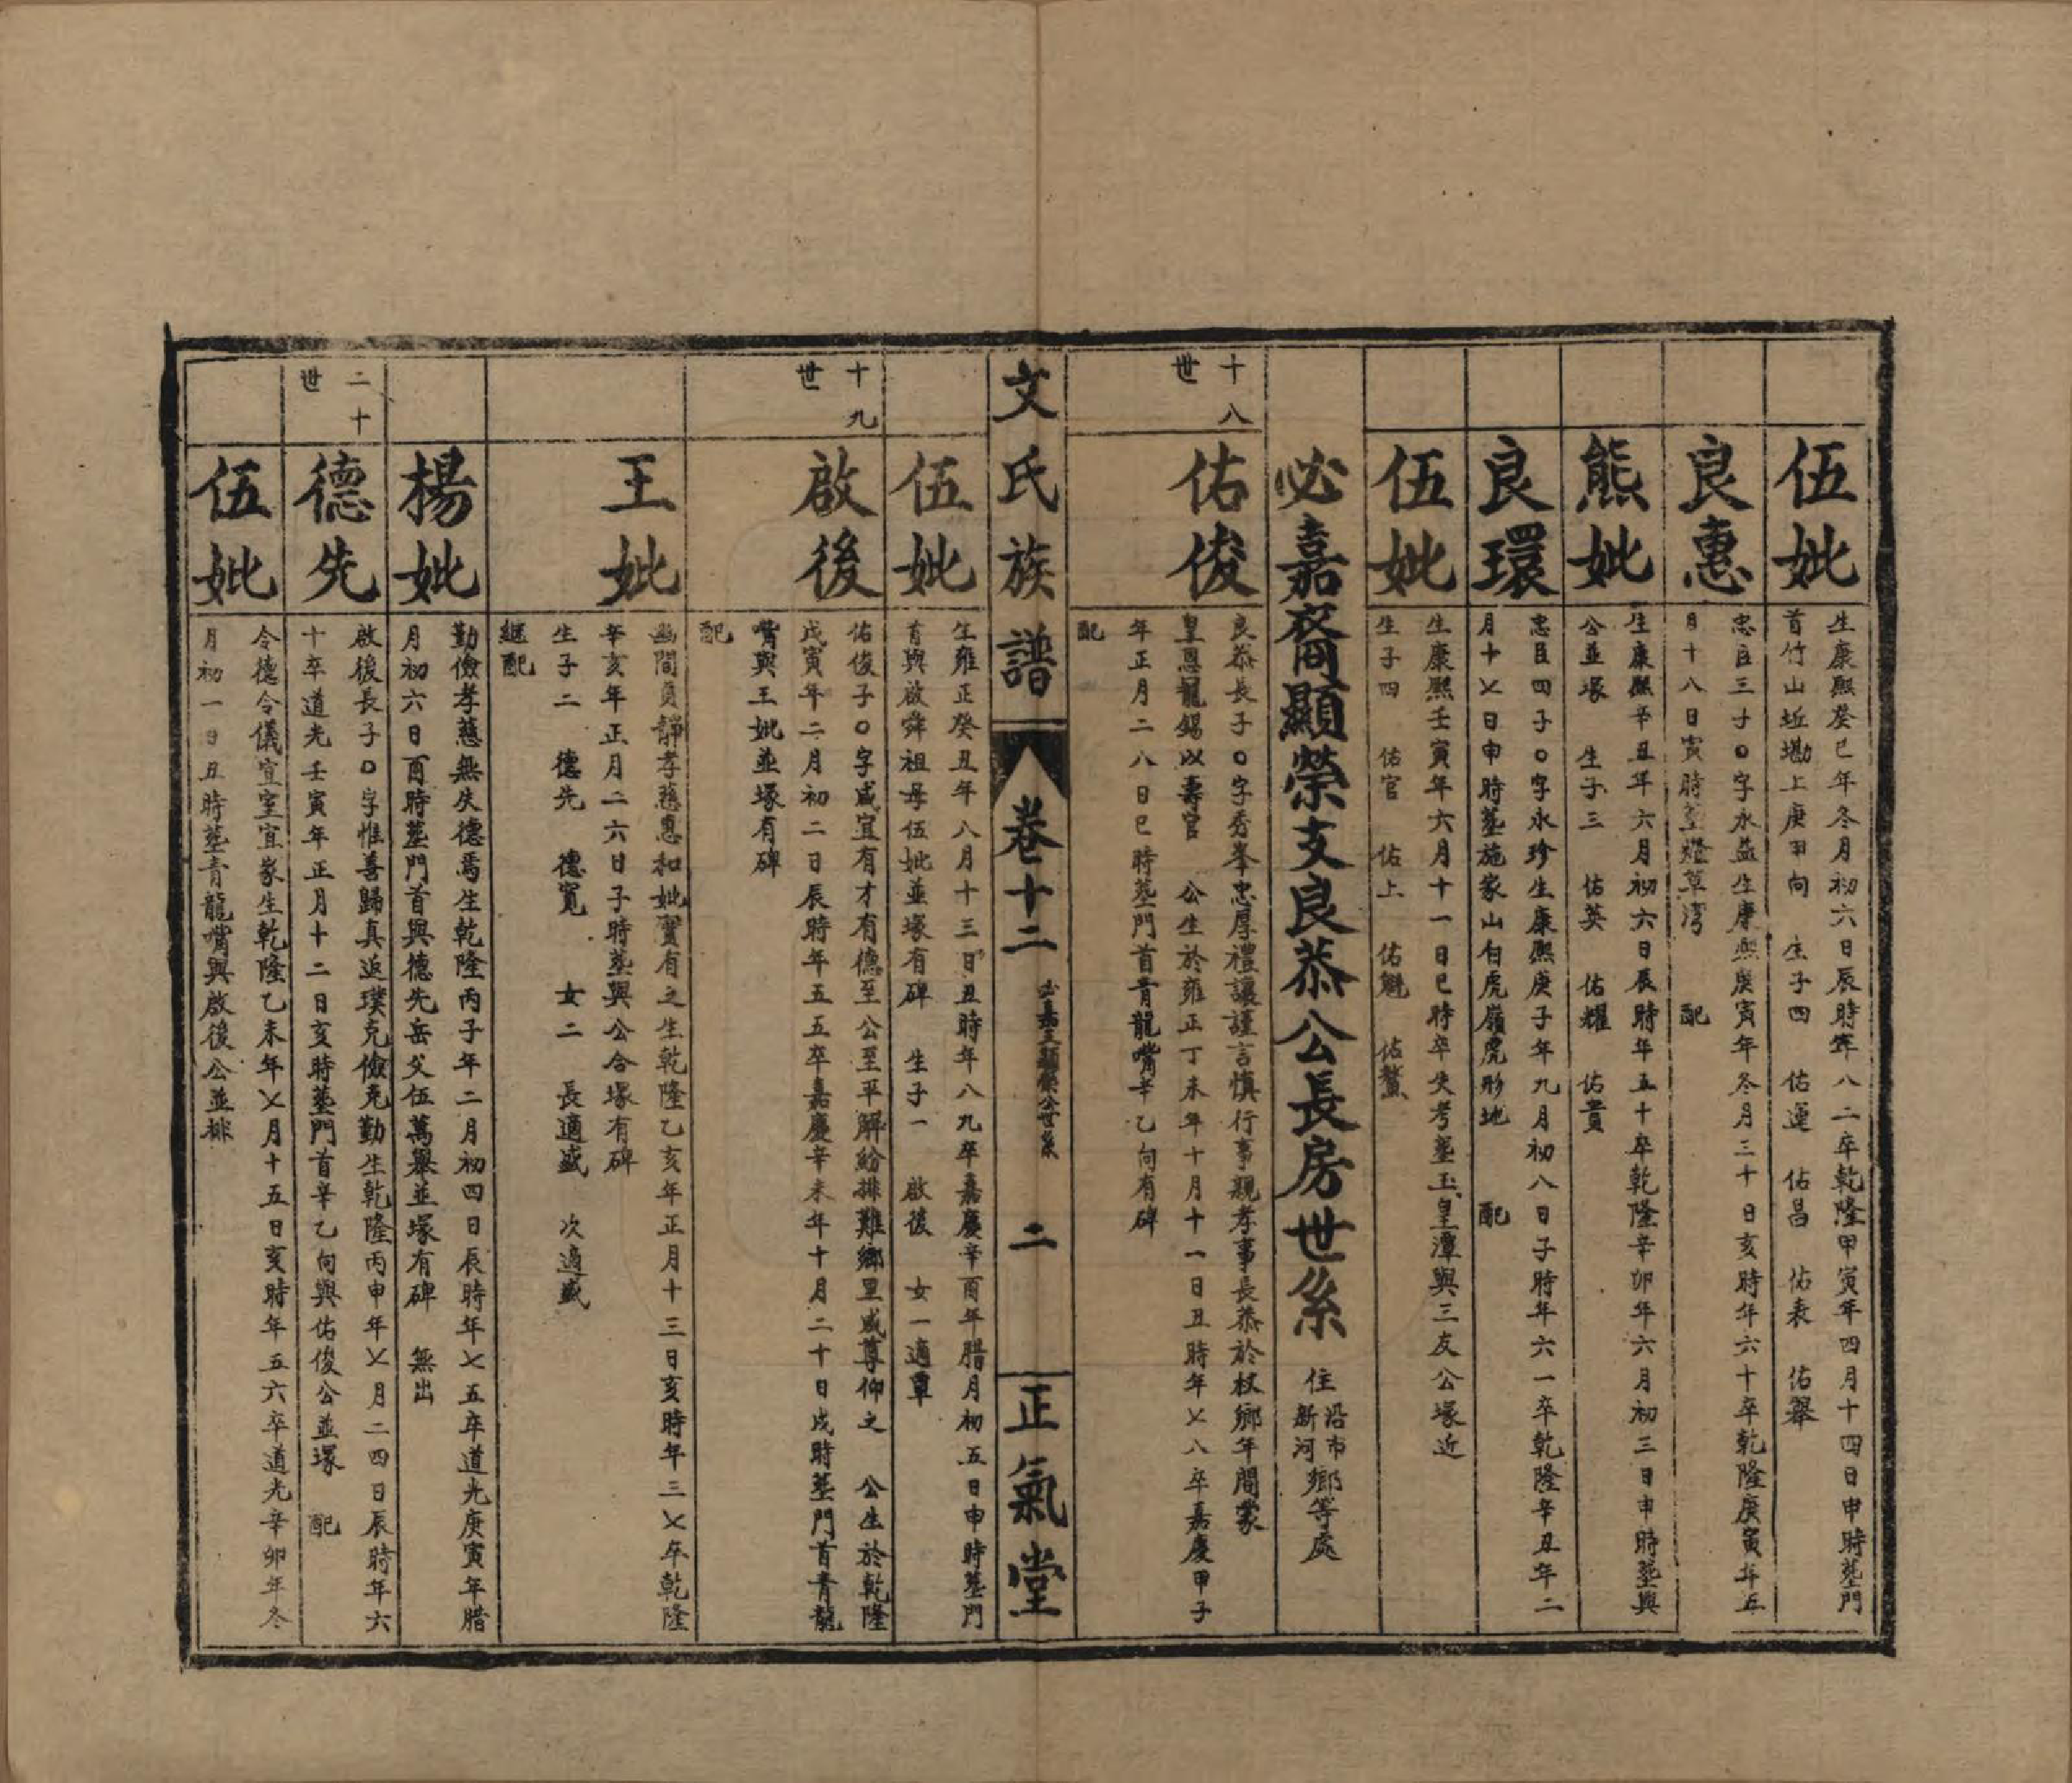 伍妣
生康熙癸巳年冬月初六日辰時年八二卒乾隆甲寅年四月十四日申時塟門
首竹山坵墈上庚甲向　生子四　佑運　佑昌　佑表　佑舉
良惠
忠臣三子〇字永益生康熙庚寅年冬月三十日亥時年六十卒乾隆庚寅年五
月十八日寅時塟燈草湾　配
熊妣
生康熙辛丑年六月初六日辰時年五十卒乾隆辛卯年六月初三日申時塟與
公並塚　生子三　佑英　佑耀　佑貴
良環
忠臣四子〇字永珍生康熙庚子年九月初八日子時年六一卒乾隆辛丑年二
月十〤日申時塟施家山白虎嶺虎形地　配
伍妣
生康熙壬寅年六月十一日巳時卒失考塟玉皇潭與三友公塚近
生子四　佑官　佑上　佑魁　佑鰲
必嘉裔顯榮支良恭公長房世系　住沿市新河鄉等處
十八世
佑俊
良恭長子〇字秀峯忠厚禮讓謹言慎行事親孝事長恭於杖鄉年間蒙
皇恩寵錫以壽官　公生於雍正丁未年十月十一日丑時年〤八卒嘉慶甲子
年正月二八日巳時塟門首青龍嘴辛乙向有碑
配
文氏族譜
卷十二
必嘉支顯榮公世系
二
正氣堂
伍妣
生雍正癸丑年八月十三日丑時年八九卒嘉慶辛酉年腊月初五日申時塟門
首與啟舜祖母伍妣並塚有碑　生子一　啟後　女一適覃
十九世
啟後
佑俊子〇字咸宜有才有德至公至平解紛排難鄉里咸尊仰之　公生於乾隆
戊寅年二月初二日辰時年五五卒嘉慶辛未年十月二十日戌時塟門首青龍
嘴與王妣並塚有碑
配
王妣
幽閒貞靜孝慈惠和妣實有之生乾隆乙亥年正月十三日亥時年三〤卒乾隆
辛亥年正月二六日子時塟與公合塚有碑
生子二　德先　德寬　女二　長適盛　次適盛
継配
楊妣
勤儉孝慈無失德焉生乾隆丙子年二月初四日辰時年七五卒道光庚寅年腊
月初六日酉時塟門首與德先岳父伍萬舉並塚有碑　無出
二十世
德先
啟後長子〇字惟善歸真返璞克儉克勤生乾隆丙申年〤月二四日辰時年六
十卒道光壬寅年正月十二日亥時塟門首辛乙向與佑俊公並塚　配
伍妣
令德令儀宜室宜家生乾隆乙未年〤月十五日亥時年五六卒道光辛卯年冬
月初一日丑時塟青龍嘴與啟後公並排